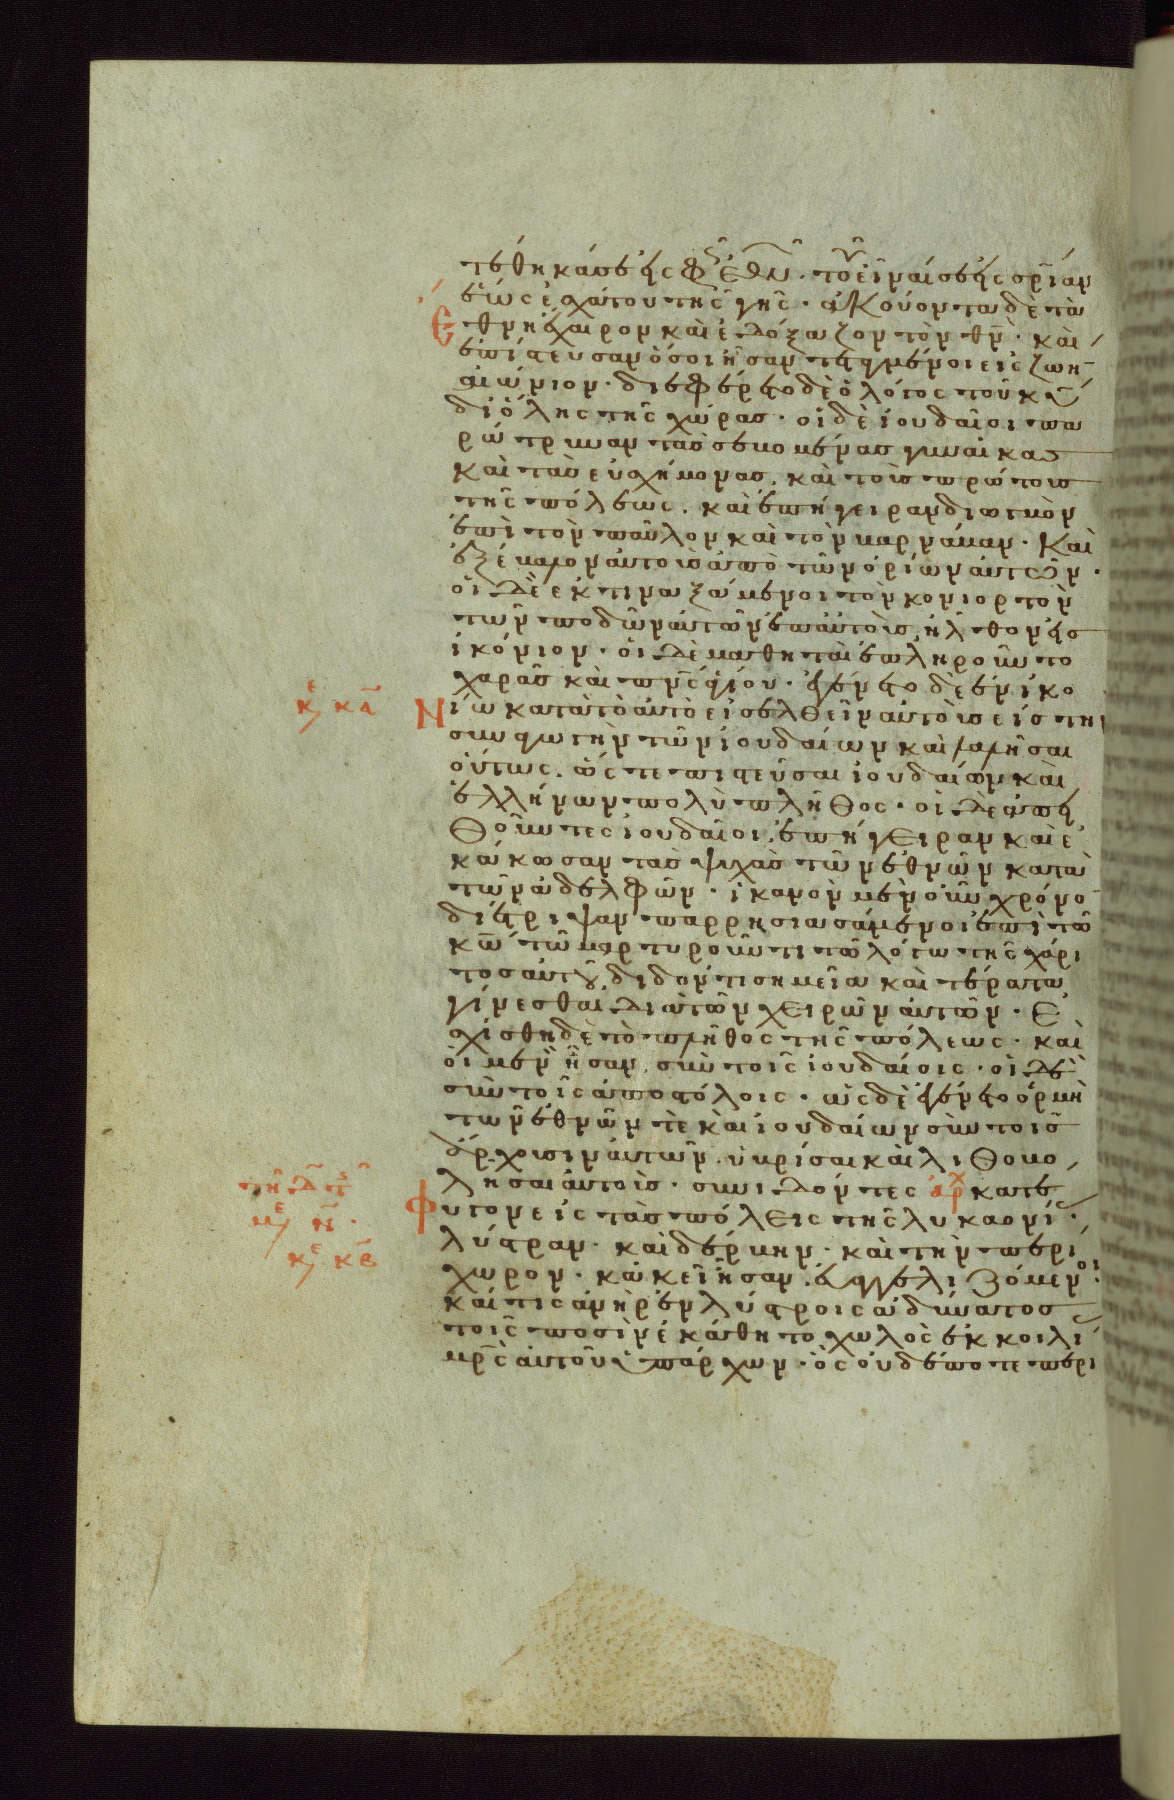 τέθηκά σε εἰς φῶς ἐθνῶν· τοῦ εἶναί σε εἰς σρίαν
ἕως ἐσχάτου τῆς γῆς· ἀκούοντα δὲ τὰ
ἔθνη ἔχαιρον καὶ ἐδόξαζον τὸν θν̄· καὶ
ἐπίστευσαν ὅσοι ἦσαν τεταγμένοι εἰς ζωὴν
αἰώνιον· διεφέρετο δὲ ὁ λόγος τοῦ κυ
δι' ὅλης τῆς χώρας· οἱ δὲ ἰουδαῖοι πα
ρώτρυναν τὰς σεβομένας γυναῖκας
καὶ τὰς εὐσχήμονας. καὶ τοὺς πρώτους
τῆς πόλεως. καὶ ἐπήγειραν διωγμὸν
ἐπὶ τὸν παῦλον καὶ τὸν βαρνάβαν· Καὶ
ἐξέβαλον αὐτοὺς ἀπὸ τῶν ὁρίων αὐτῶν·
οἱ δὲ ἐκτιναξάμενοι τὸν κονιορτὸν
τῶν ποδῶν αὐτῶν ἐπ' αὐτοὺς, ἦλθον εἰς
ἰκόνιον· οἱ δὲ μαθηταὶ ἐπληροῦντο
χαρᾶς καὶ πνς ἁγίου· ἐγένετο δὲ ἐν ἰκο
κε κα Νίω κατὰ τὸ αὐτὸ εἰσελθεῖν αὐτοὺς εἰς τὴν
συναγωγὴν τῶν ἰουδαίων καὶ λαλῆσαι
οὕτως. ὥστε πιστεῦσαι ἰουδαίων καὶ
ἑλλήνων πολὺ πλῆθος· οἱ δὲ ἀπει
θοῦντες ἰουδαῖοι, ἐπήγειραν καὶ ἐ
κάκωσαν τὰς ψυχὰς τῶν ἐθνῶν κατὰ
τῶν ἀδελφῶν· ἱκανὸν μὲν οὖν χρόνον
διέτριψαν παρρησιασάμενοι ἐπὶ τῶ
κω τῶ μαρτυροῦντι τῶ λόγω τῆς χάρι
τος αὐτοῦ, διδόντι σημεῖα καὶ τέρατα
γίνεσθαι διὰ τῶν χειρῶν αὐτῶν· Ἐ
σχίσθη δὲ τὸ πλῆθος τῆς πόλεως· καὶ
οἱ μὲν ἦσαν, σὺν τοῖς ἰουδαίοις· οἱ δὲ
σὺν τοῖς ἀποστόλοις· ὡς δὲ ἐγένετο ὁρμὴ
τῶν ἐθνῶν τὲ καὶ ἰουδαίων σὺν τοῖς
ἄρχουσιν αὐτῶν. ὑβρίσαι καὶ λιθοβο
λῆσαι αὐτοὺς· συνιδόντες ἀρχ κατέ
Φυγον εἰς τὰς πόλεις τῆς λυκαονίας·
λύστραν· καὶ δέρβην· καὶ τὴν περί
κε κβ χωρον· κἀκεῖ ἦσαν εὐαγγελιζόμενοι·
καί τις ἀνὴρ ἐν λύστροις ἀδύνατος
τοῖς ποσὶν ἐκάθητο χωλὸς ἐκ κοιλί
μρς αὐτοῦ ὑπάρχων· ὃς οὐδέποτε περι